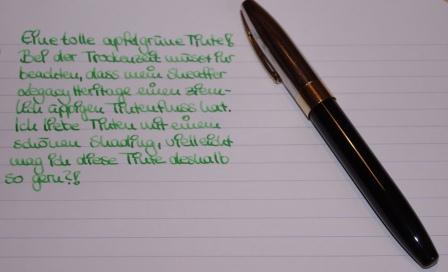 Eine tolle apfelgrüne Tinte!
Bei der Trockenzeit müsst Ihr
beachten, dass mein Sheaffer
Legacy Heritage einen ziem-
lich üppigen Tintenfluss hat.
Ich liebe Tinten mit einem
schönen Shading, vielleicht
mag ich diese Tinte deshalb
so gern?!